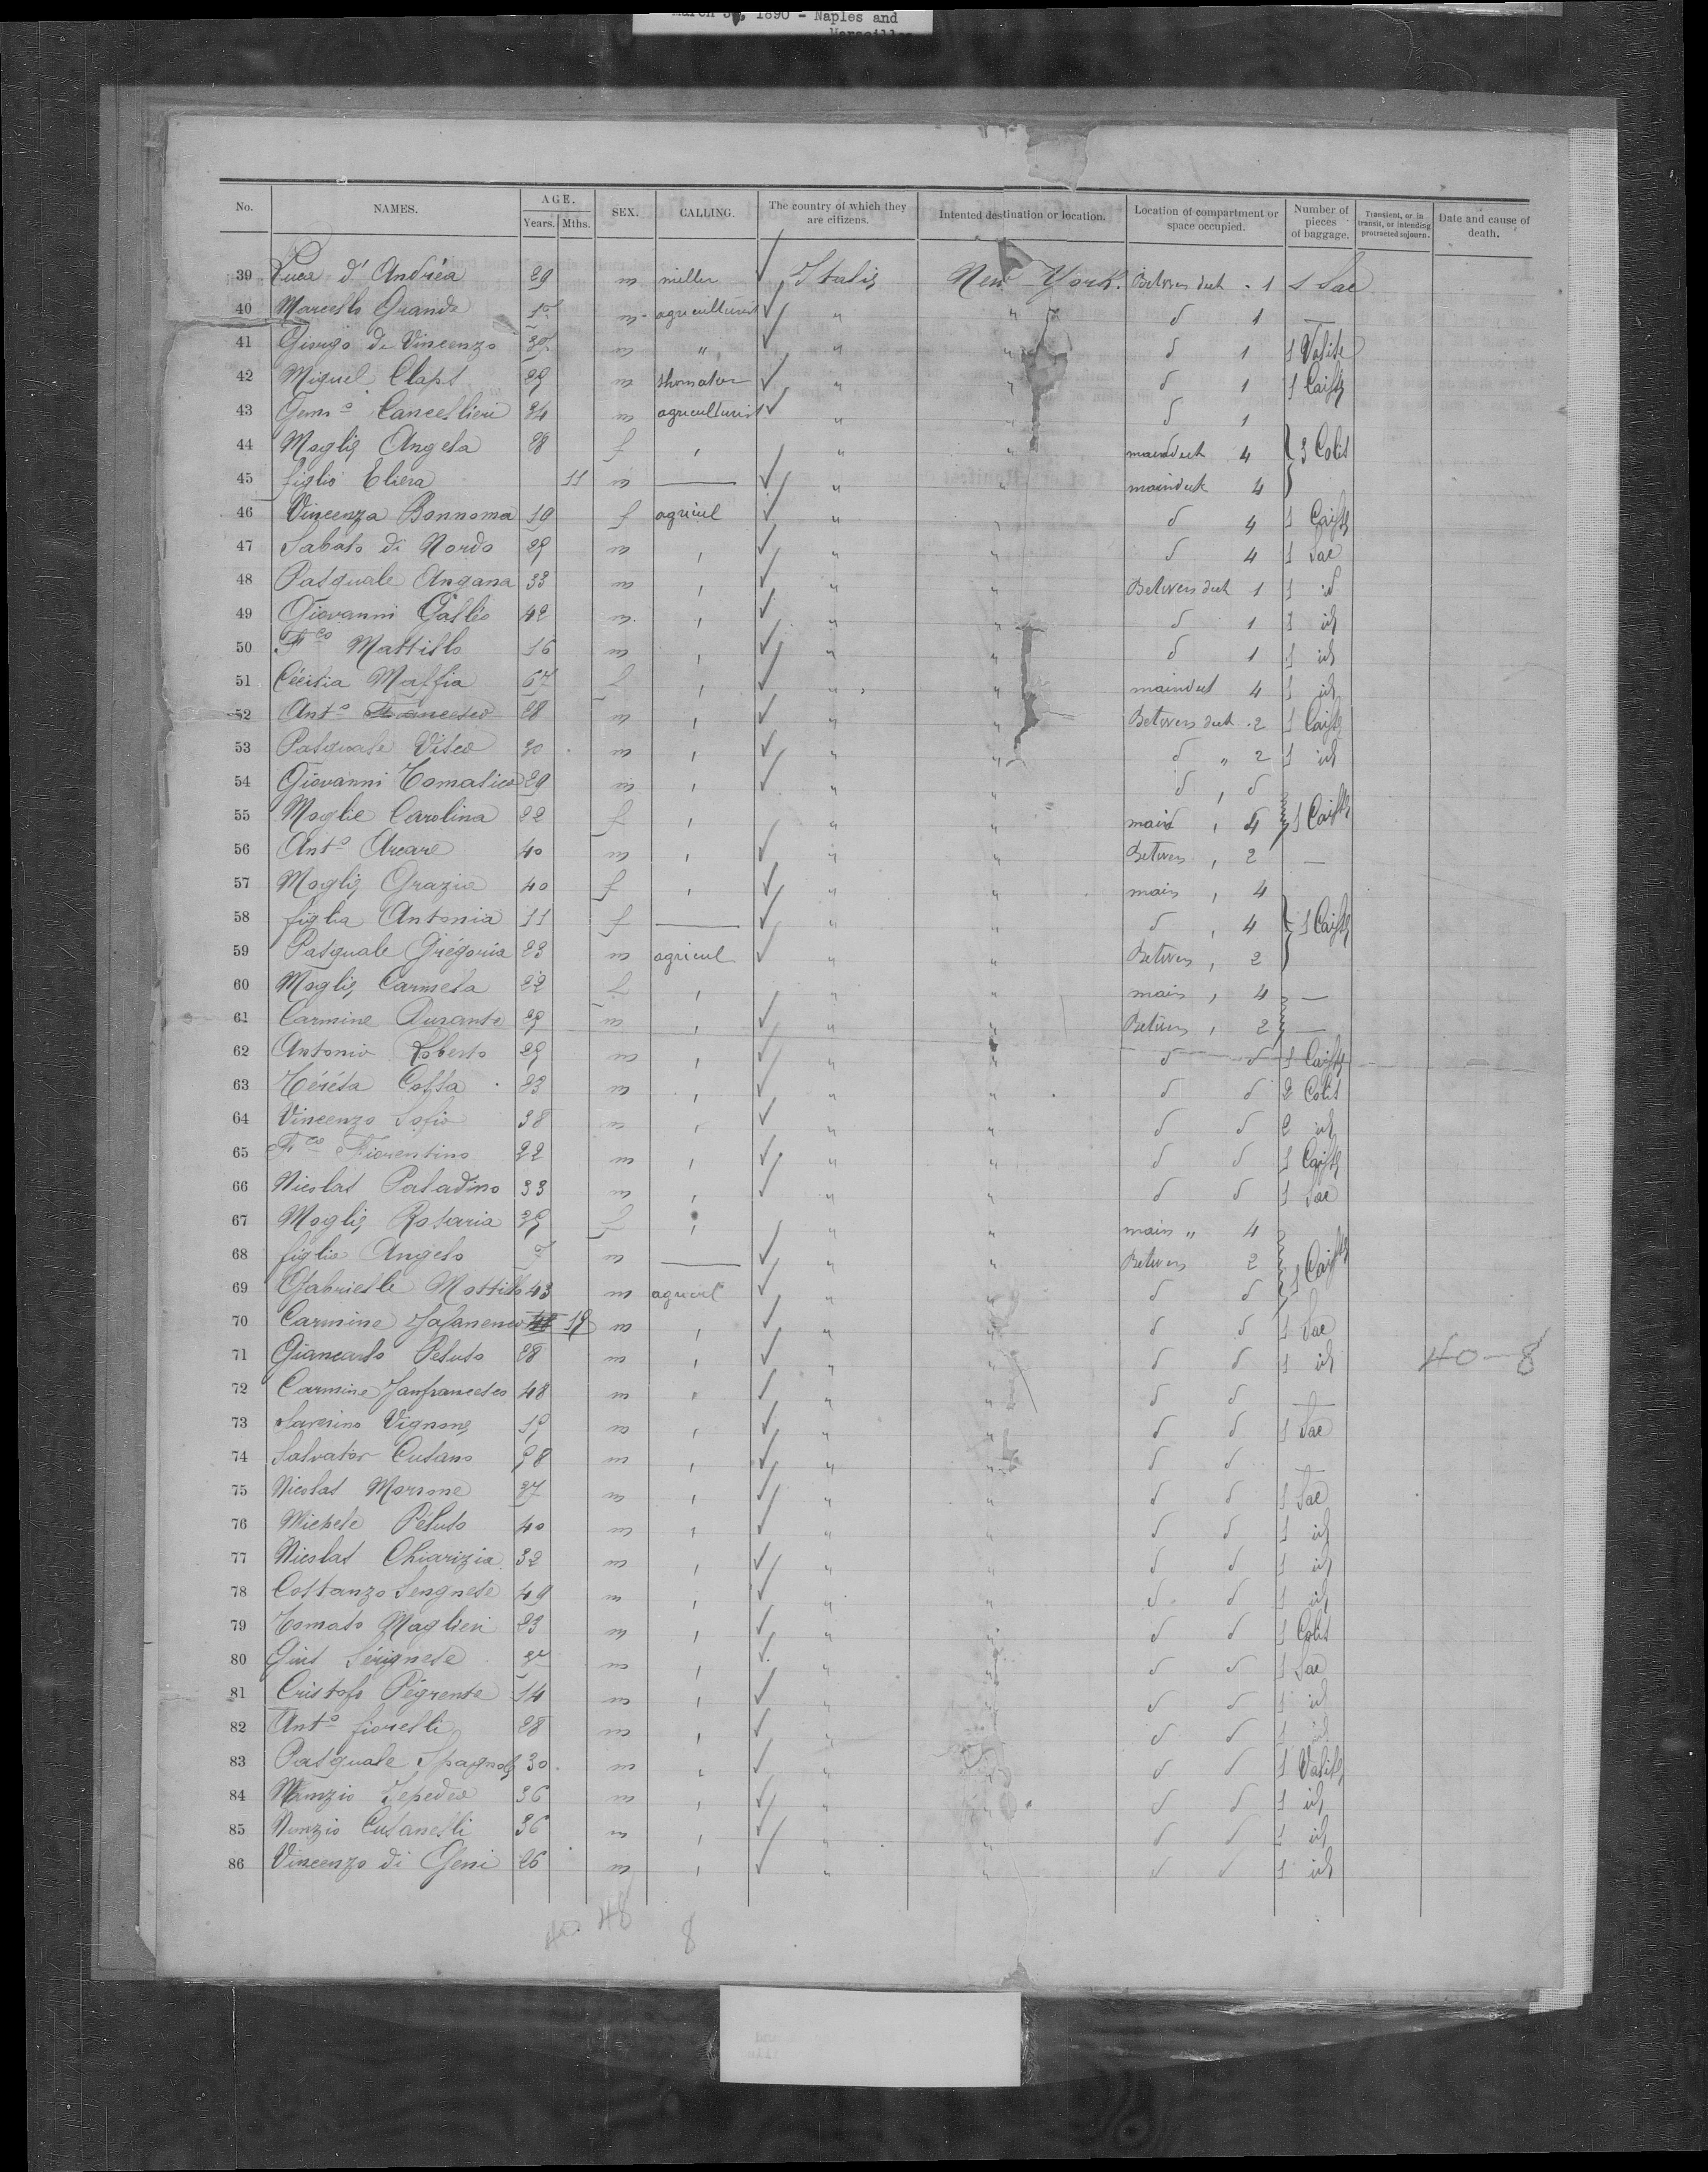 March 3, 1890 - Naples and
Marseilles
No. NAMES. AGE. Years. Mths. SEX. CALLING. The country of which they are citizens. Intented destination or location. Location of compartment or space occupied. Number of pieces of baggage. Transient, or in transit, or intending protracted sojourn. Date and cause of death.
39 Luca d'Andréa 29 m miller ✓ Italie New York. Between deck 1 1 Sac
40 Marcello Grande m agriculturist ✓ " " d 1 —
41 Giorgio de Vincenzo m " ✓ " " d 1 1 Valise
42 Miguel Claps 29 m shomaker ✓ " " d 1 1 Caisse
43 Genro Cancellieri 34 m agriculturist ✓ " " d 1
44 Moglie Angela 28 f , " " maindeck 4 3 Colis
45 figlio Eliera 11 m — ✓ " " maindeck 4
46 Vincenza Bonnoma 19 f agricul ✓ " " d 4 1 Caisse
47 Sabato di Nardo 29 m , ✓ " " d 4 1 Sac
48 Pasquale Angana 33 m , ✓ " " Between deck 1 1 id
49 Giovanni Gallio 42 m , ✓ " " d 1 1 id
50 Fco Mattillo 16 m , ✓ " " d 1 1 id
51 Cécilia Maffia 67 f , ✓ " " maindeck 4 1 id
52 Anto Francesco 28 m , ✓ " " Between deck 2 1 Caisse
53 Pasquale Viseo 30 m , ✓ " " d " 2 1 id
54 Giovanni Tomasico 29 m , ✓ " " d , d
55 Moglie Carolina 22 f , " " main , 4 1 Caisse
56 Anto Arcare 40 m , ✓ " " Between , 2 —
57 Moglie Grazia 40 f , ✓ " " main , 4
58 figlia Antonia 11 f — ✓ " " d , 4 1 Caisse
59 Pasquale Grégoria 23 m agricul ✓ " " Between , 2
60 Moglie Carmela 22 f , " " main , 4 —
61 Carmine Durante 29 m , ✓ " " Between , 2 —
62 Antonio Roberto 29 m , ✓ " " d d 1 Caisse
63 Térésa Cossa 23 m , ✓ " " d d 2 Colis
64 Vincenzo Sofio 38 m , ✓ " " d d 2 id
65 Fco Fiorentino 22 m , ✓ " " d d 1 Caisse
66 Nicolas Paladino 33 m , ✓ " " d d 1 Sac
67 Moglie Rosaria f , " " main " 4
68 figlio Angelo m — ✓ " " Between 2 1 Caisse
69 Gabrielle Mattillo 43 m agricul ✓ " " d d
70 Carmine 19 m , ✓ " " d d 1 Sac
71 Giancarlo Peluso 28 m , ✓ " " d d 1 id 40—8
72 Carmine Janfrancesco 48 m , ✓ " " d d —
73 Saverino Vignone 19 m , ✓ " " d d 1 Sac
74 Salvator Cusano 28 m , ✓ " " d d —
75 Nicolas Morrone 27 m , ✓ " " d d 1 Sac
76 Michele Péluso 40 m , ✓ " " d d 1 id
77 Nicolas Chiarizia 32 m , ✓ " " d d 1 id
78 Costanzo Sengnese 49 m , ✓ " " d d 1 id
79 Tomaso Maglieri 23 m , ✓ " " d d 1 Colis
80 Gius Sérignese m , ✓ " " d d 1 Sac
81 Cristofo Pégrente 14 m , ✓ " " d d 1 id
82 Anto fiorelli 28 m , ✓ " " d d 1 id
83 Pasquale Spagnole 30 m , ✓ " " d d 1 Valise
84 Nunzio Sepedeo 36 m , ✓ " " d d 1 id
85 Nunzio Cusanelli 36 m , ✓ " " d d 1 id
86 Vincenzo di Geni 26 m , ✓ " " d d 1 id
40 48
8